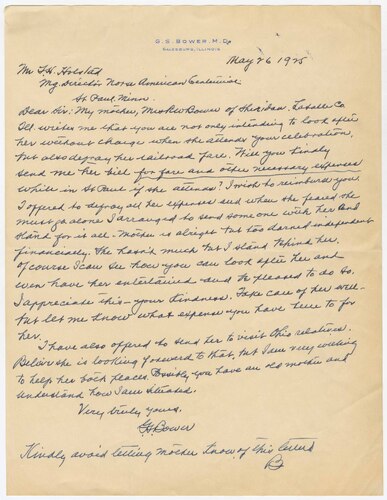 G. S. BOWER, M. D.
GALESBURG, ILLINOIS
May 26 1925
Mr J. H. Holstad
Mg. Director Norse American Centennial
St Paul. Minn.
Dear Sir: My mother, Mrs K W Bower of Sheridan. Lasalle Co
Ill. writes me that you are not only intending to look after
her without charge when she attends your celebration,
but also defray her railroad fare. Will you kindly
send me her bill for fare and other necessary expenses
while in St Paul if she attends? I wish to reimburse you
I offered to defray all her expenses and when she feared she
must go alone I arranged to send some one with her and I
stand for it all - Mother is alright but too darned independent
financially. She hasn't much but I stand behind her.
Of course I can see how you can look after her and
even have her entertained and be pleased to do so.
I appreciate this - your kindness. Take care of her well -
but let me know what expense you have there to for
her.
I have also offered to send her to visit Ohio relatives.
Believe she is looking forward to that, but I am very willing
to help her both places. Possibly you have an old mother and
understand how I am situated.
Very truly yours.
GS Bower
Kindly avoid letting mother know of this letter
B